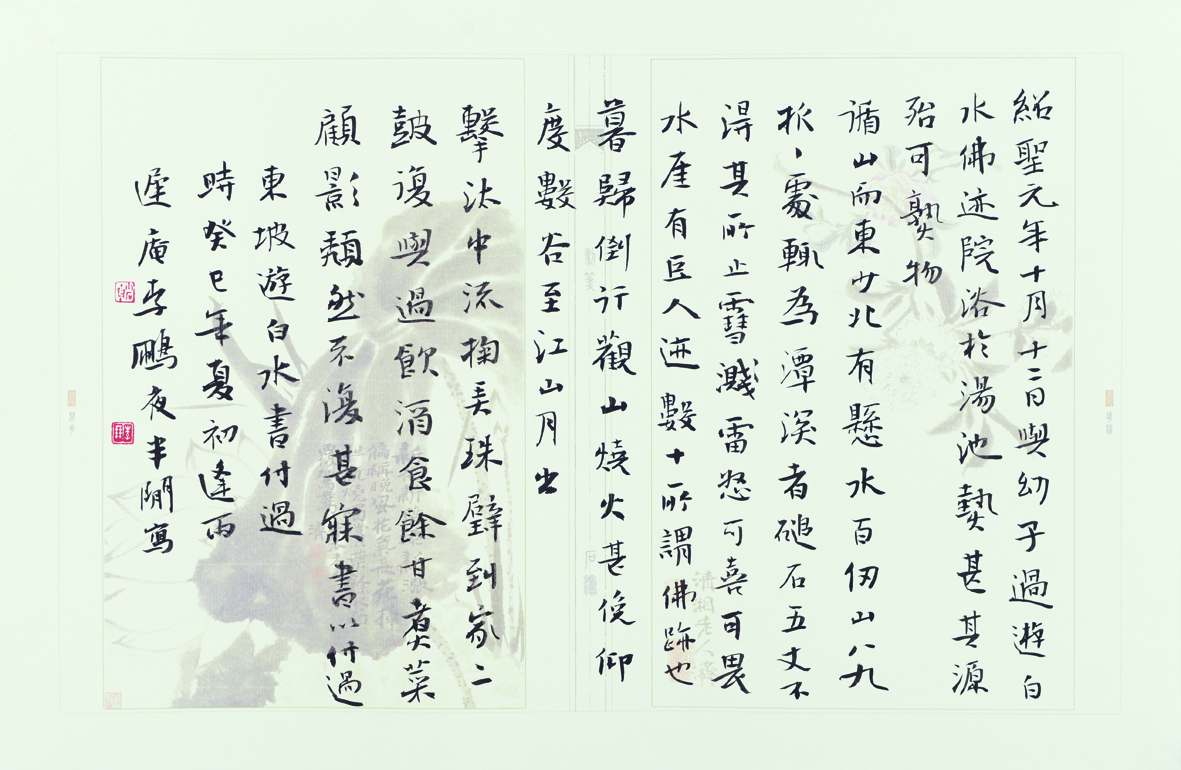 紹聖元年十月十二日與幼子過遊白
水佛迹院浴於湯池熱甚其源
殆可熟物
循山而東少北有懸水百仞山八九
折〻處輒為潭深者磓石五丈不
得其所止雪濺雷怒可喜可畏
水厓有巨人迹數十所謂佛跡也
暮歸倒行觀山燒火甚俛仰
度數谷至江山月出
擊汰中流掬弄珠璧到家二
鼓復與過飲酒食餘甘煮菜
顧影頹然不復甚寐書以付過
東坡遊白水書付過
時癸巳年夏初逢雨
庵李鵬夜半寫